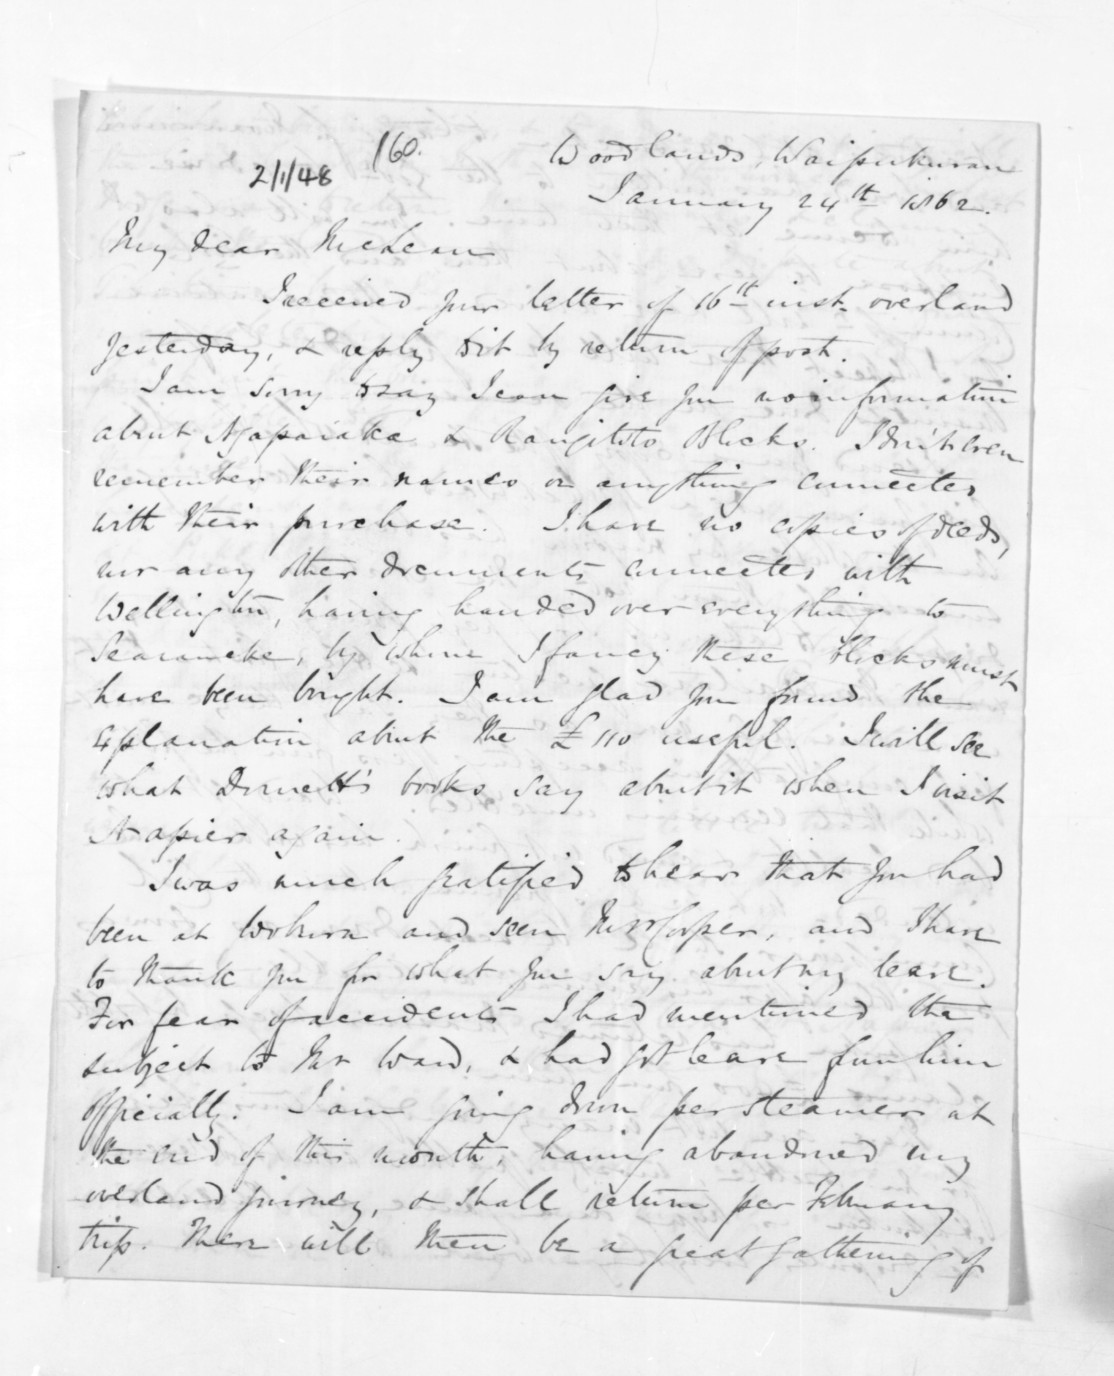 160.
2/1/48
Woodlands, Waipukurau
January 24th 1862.
My dear McLean
I received your letter of 16th inst. overland
yesterday, & reply to it by return of post.
I am sorry to say I can give you no information
about Ngapaiaka & Rangitoto Blocks. I don't even
remember their names or anything connected
with their purchase. I have no copies of deeds,
nor any other documents connected with
Wellington, having handed over everything to
Searancke, by whom I fancy these blocks must
have been bought. I am glad you found the
explanation about the £110 useful. I will see
what Dornett's books say about it when I visit
Napier again.
I was much gratified to hear that you had
been at Woburn and seen Mrs Cooper, and I have
to thank you for what you say about my leave.
For fear of accidents I had mentioned the
subject to Mr Ward, & had got leave from him
officially. I am going down per steamer at
the end of this month, having abandoned my
overland journey, & shall return per February
trip. There will then be a great gathering of